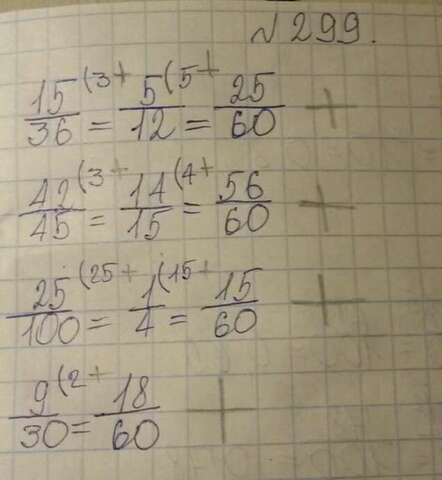 №299.
15/36 (3+ = 5/12 (5+ = 25/60 +
42/45 (3+ = 14/15 (4+ = 56/60 +
25/100 (25+ = 1/4 (15+ = 15/60 +
9/30 (2+ = 18/60 +